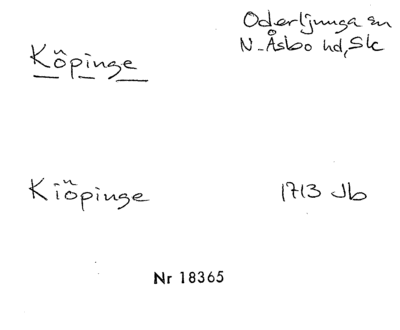 Oderljunga sn
N-Åsbo hd, Sk
Köpinge
Kiöpinge 1713 Jb
Nr 18365